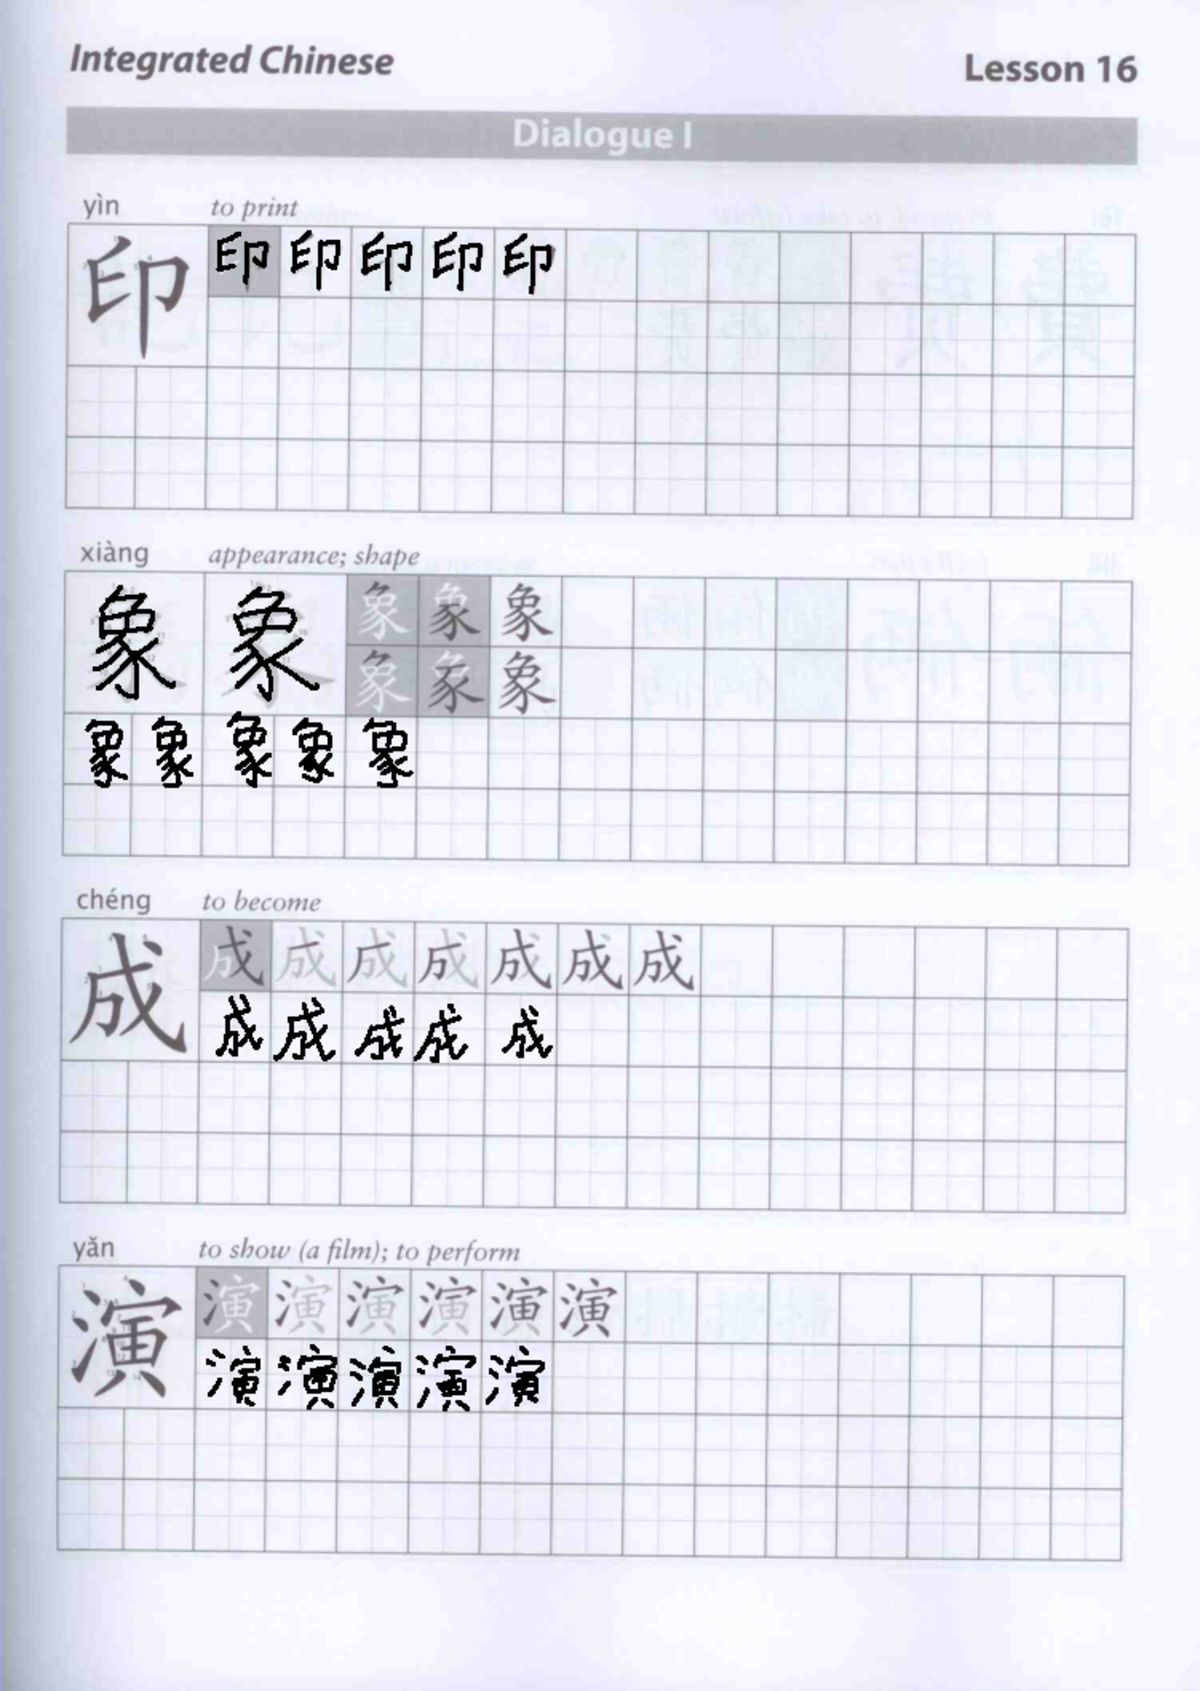 Integrated Chinese
Lesson 16
Dialogue I
yìn to print
印 印 印 印 印 印
xiàng appearance; shape
象 象 象 象 象
象 象 象
象 象 象 象 象
chéng to become
成 成 成 成 成 成 成 成
成 成 成 成 成
yǎn to show (a film); to perform
演 演 演 演 演 演 演
演 演 演 演 演